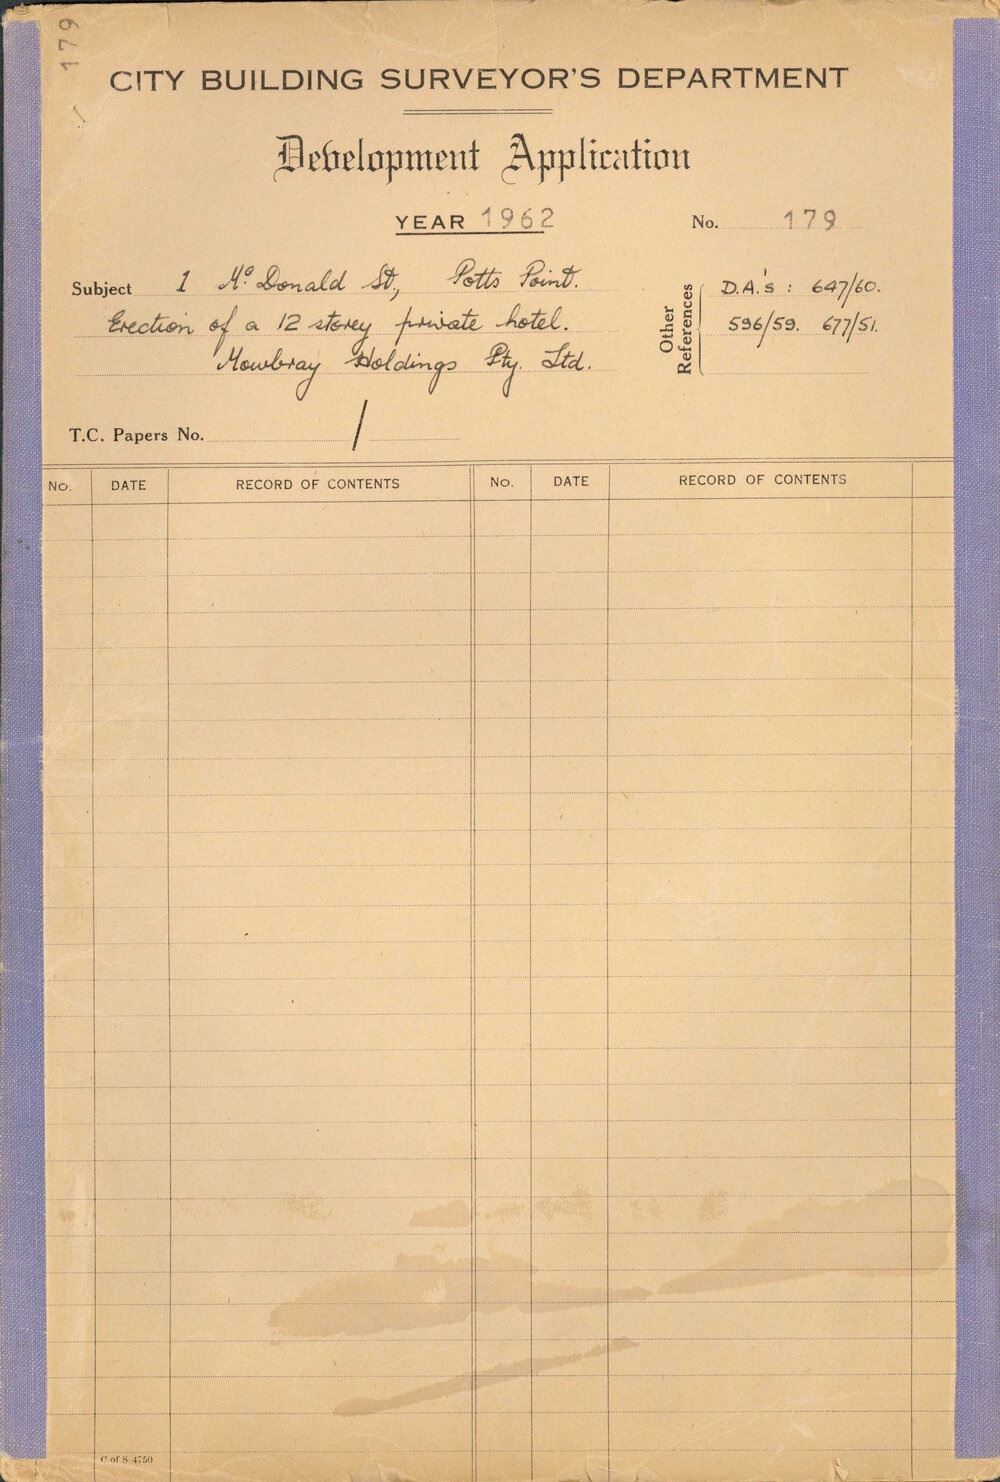 179
CITY BUILDING SURVEYOR'S DEPARTMENT
Development Application
YEAR 1962 No. 179
Subject 1 McDonald St., Potts Point.
Erection of a 12 storey private hotel.
Mowbray Holdings Pty. Ltd.
Other References
D.A.'s : 647/60.
596/59. 677/51.
T.C. Papers No. /
No. DATE RECORD OF CONTENTS No. DATE RECORD OF CONTENTS
C of S 4750